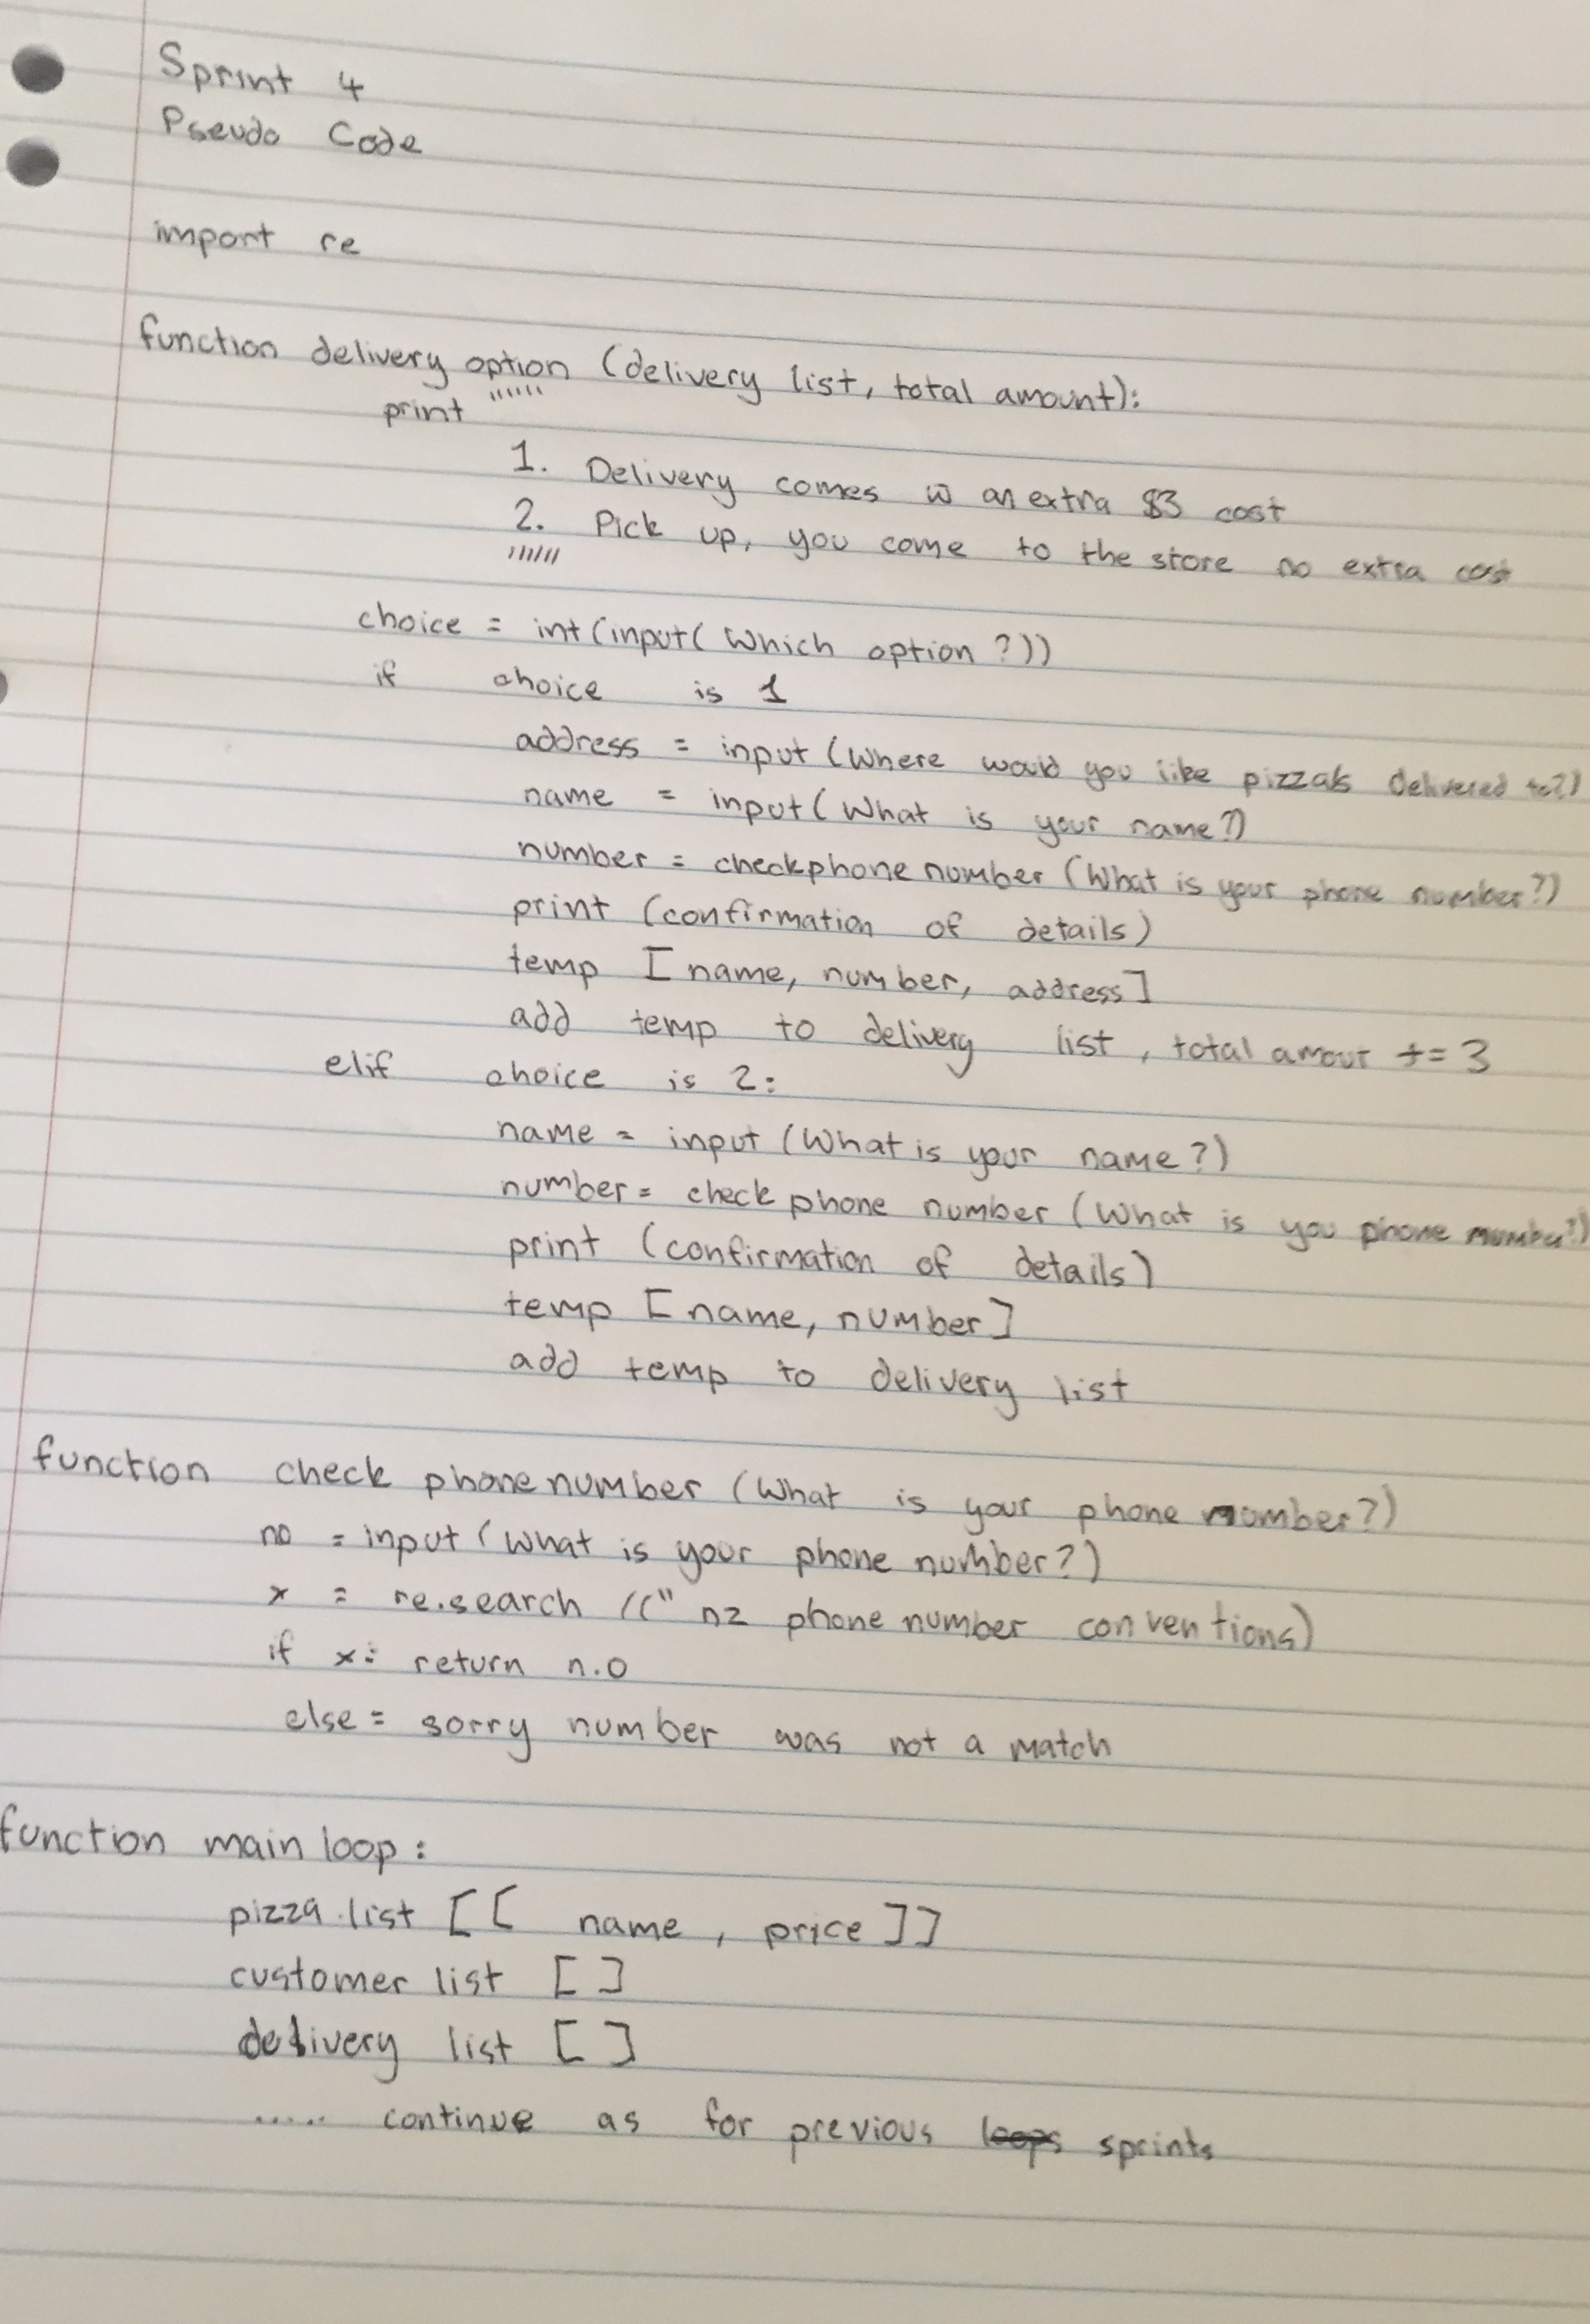 Sprint 4
Pseudo Code
import re
function delivery option (delivery list, total amount):
print """
1. Delivery comes w an extra $3 cost
2. Pick up, you come to the store no extra cost
"""
choice = int(input( Which option ?))
if choice is 1
address = input (Where would you like pizzas delivered to?)
name = input( What is your name?)
number = checkphone number (What is your phone number?)
print (confirmation of details)
temp [ name, number, address]
add temp to delivery list, total amour += 3
elif choice is 2:
name = input (What is your name?)
number = check phone number (What is you phone number?)
print (confirmation of details)
temp [ name, number]
add temp to delivery list
function check phone number (What is your phone number?)
no = input (What is your phone number?)
x = re.search (( " nz phone number conventions)
if x: return n.o
else = sorry number was not a match
function main loop :
pizza list [ [ name, price ] ]
customer list [ ]
delivery list [ ]
..... continue as for previous loops sprints